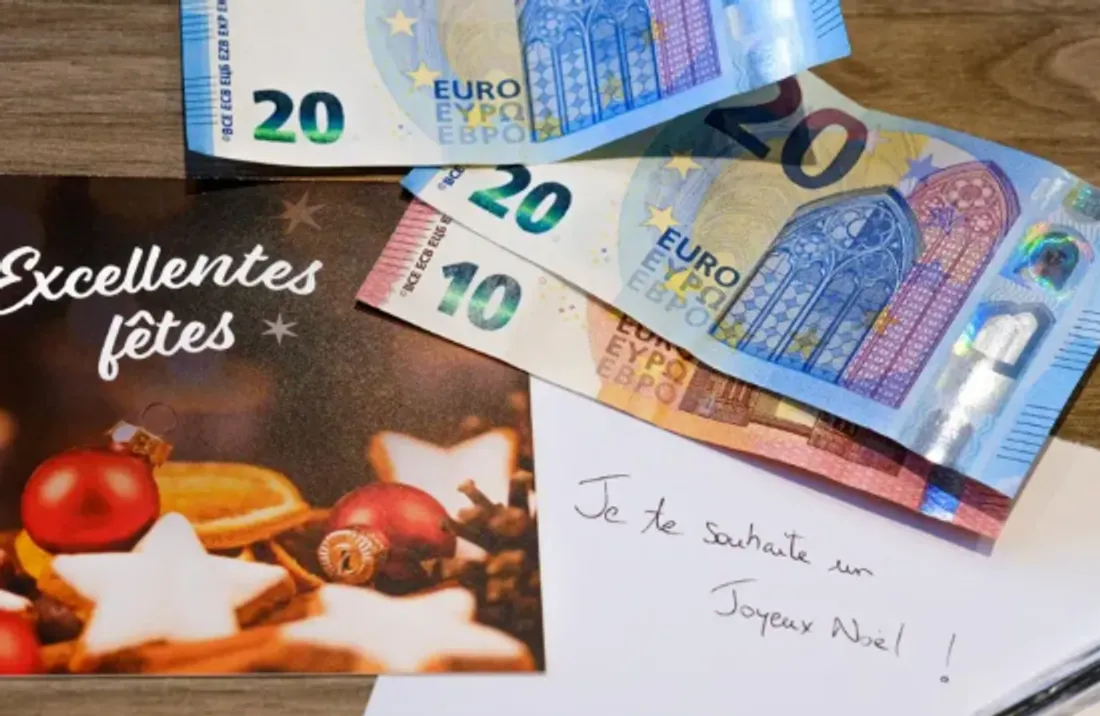 20
EURO
ΕΥΡΩ
ЕВРО
20
20
EURO
ΕΥΡΩ
ЕВРО
10
EURO
ΕΥΡΩ
ЕВРО
Excellentes
fêtes
Je te souhaite un
Joyeux Noël !